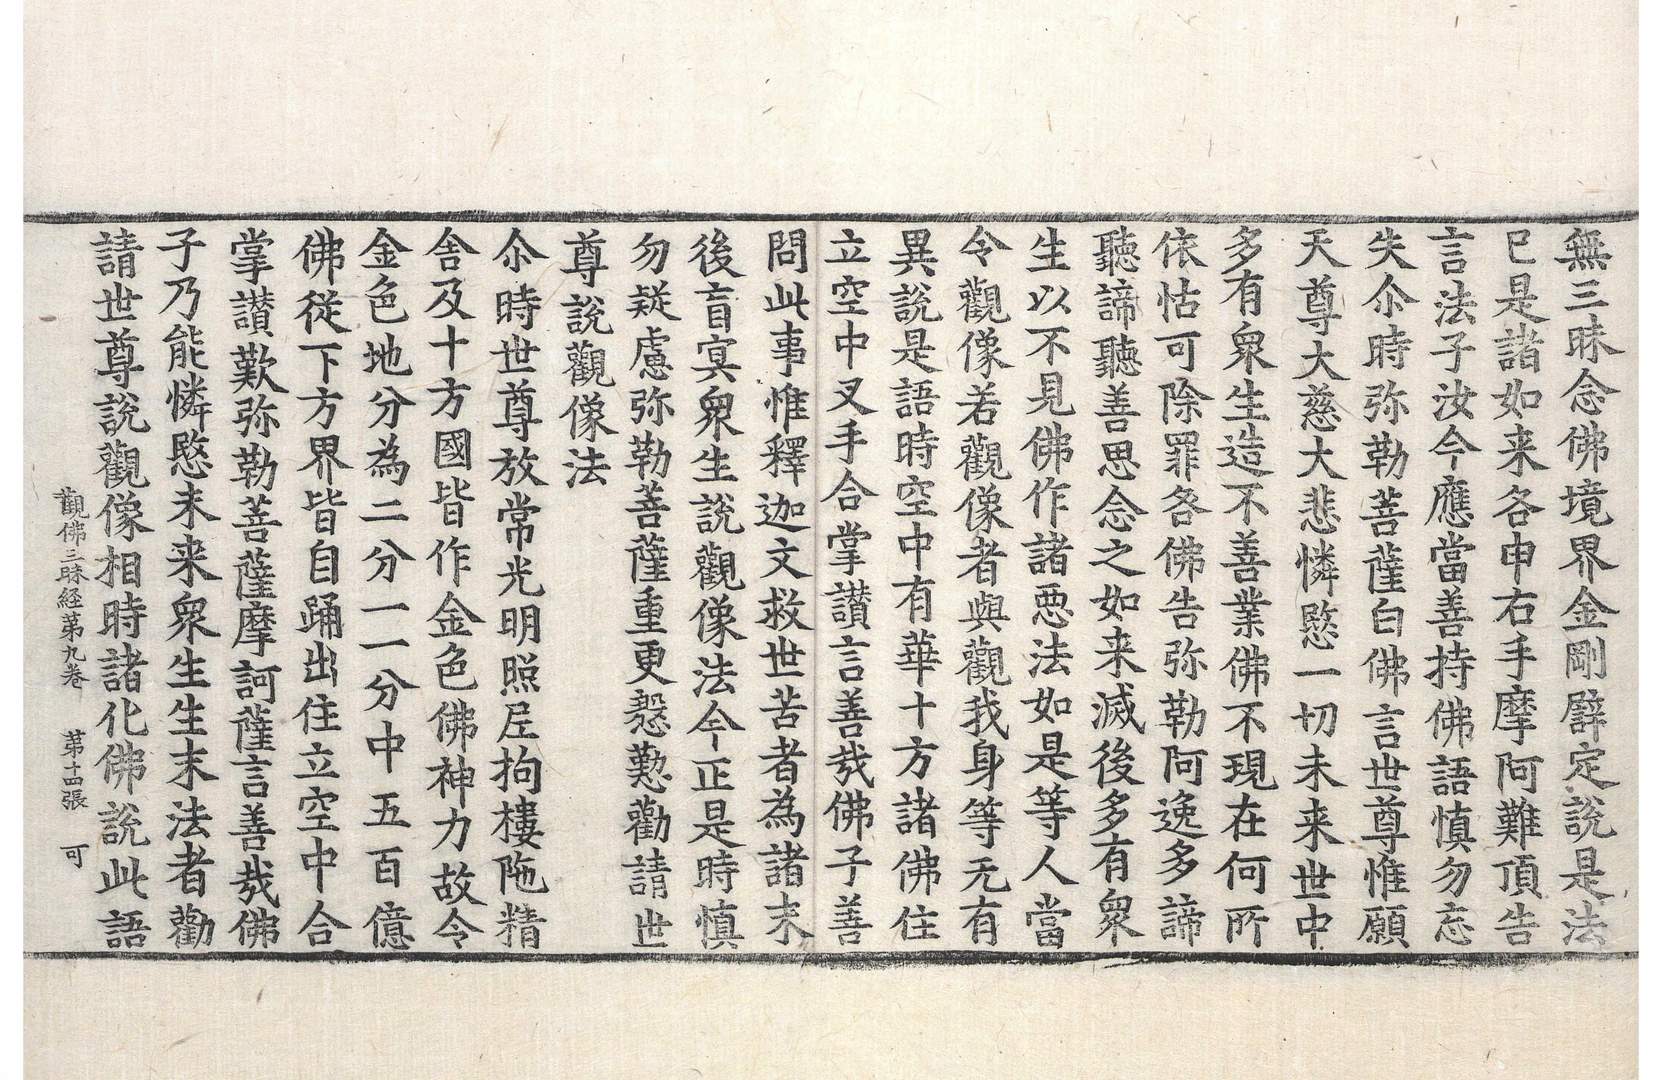 無三昧念佛境界金剛辟定說是法
已是諸如来各申右手摩阿難頂告
言法子汝今應當善持佛語慎勿忘
失尒時弥勒菩薩白佛言世尊惟願
天尊大慈大悲憐愍一切未来世中
多有衆生造不善業佛不現在何所
依怙可除罪咎佛告弥勒阿逸多諦
聽諦聽善思念之如来滅後多有衆
生以不見佛作諸惡法如是等人當
令觀像若觀像者與觀我身等无有
異說是語時空中有華十方諸佛住
立空中叉手合掌讚言善哉佛子善
問此事惟釋迦文救世苦者為諸末
後盲冥衆生說觀像法今正是時慎
勿疑慮弥勒菩薩重更慇懃勸請世
尊說觀像法
尒時世尊放常光明照尼拘樓陁精
舎及十方國皆作金色佛神力故令
金色地分為二分一一分中五百億
佛從下方界皆自踊出住立空中合
掌讃歎弥勒菩薩摩訶薩言善哉佛
子乃能憐愍未来衆生生末法者勸
請世尊說觀像相時諸化佛說此語
觀佛三昧経第九卷 第十四張 可